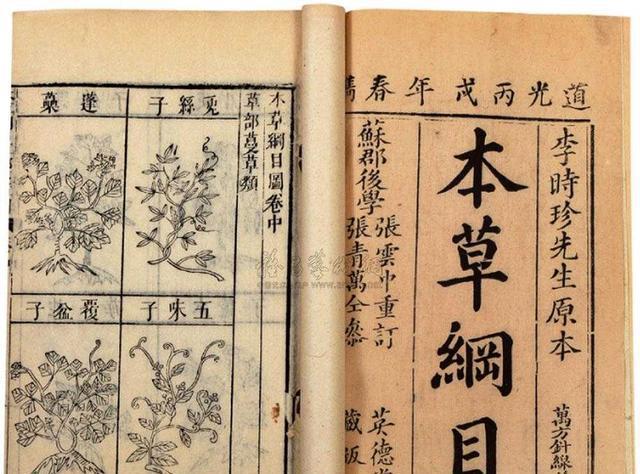 道光丙戌年春鐫
李時珍先生原本
本草綱目
萬方針線
蘇郡後學
張雲中重訂
張青萬仝參
英德堂
藏版
本草綱目圖卷中
草部蔓草類
兎絲子
蓬藥
五味子
覆盆子